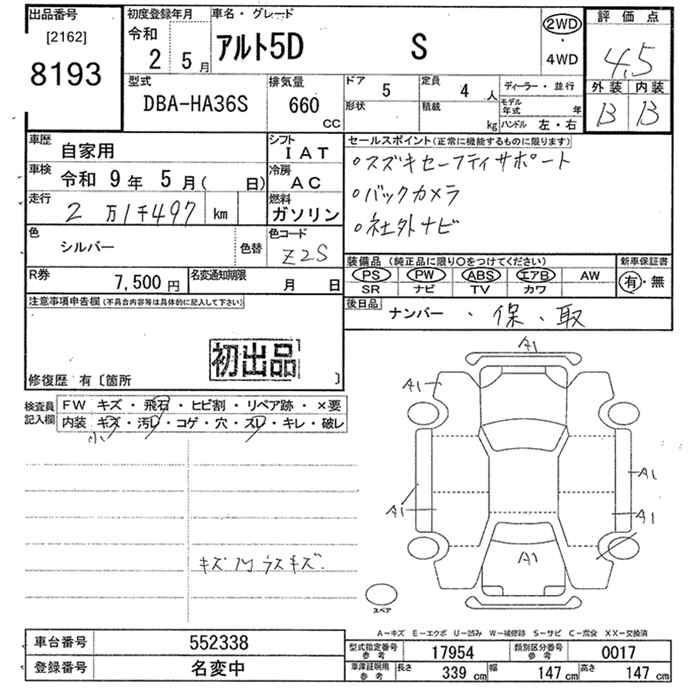 出品番号
[2162]
8193
初度登録年月
令和
2 5月
車名・グレード
アルト5D S
2WD
・
4WD
評価点
4.5
外装 内装
B B
型式
DBA-HA36S
排気量
660
cc
ドア 5
定員 4 人
形状
積載 kg
ディーラー・並行
モデル年式 年
ハンドル 左・右
車歴
自家用
シフト
IAT
車検
令和 9年 5月( 日)
冷房
AC
走行
2万1千497 km
燃料
ガソリン
色
シルバー
色替
色コード
Z2S
R券
7,500円
名変通知期限
月 日
セールスポイント(正常に機能するものに限ります)
○スズキセーフティサポート
○バックカメラ
○社外ナビ
装備品(純正品に限り○をつけてください)
PS PW ABS エアB AW
SR ナビ TV カワ
新車保証書
有・無
後日品
ナンバー・保・取
注意事項申告欄(不具合内容等は具体的に記入して下さい)
初出品
修復歴 有〔箇所 〕
検査員
記入欄
FW キズ・飛石・ヒビ割・リペア跡・×要
内装 キズ・汚レ・コゲ・穴・スレ・キレ・破レ
小
A1
A1
A1
A1
A1
A1
スペア
A−キズ E−エクボ U−凹み W−補修跡 S−サビ C−腐食 XX−交換済
車台番号
552338
登録番号
名変中
型式指定番号
参考
17954
類別区分番号
参考
0017
車庫証明用
参考
長さ 339 cm
幅 147 cm
高さ 147 cm